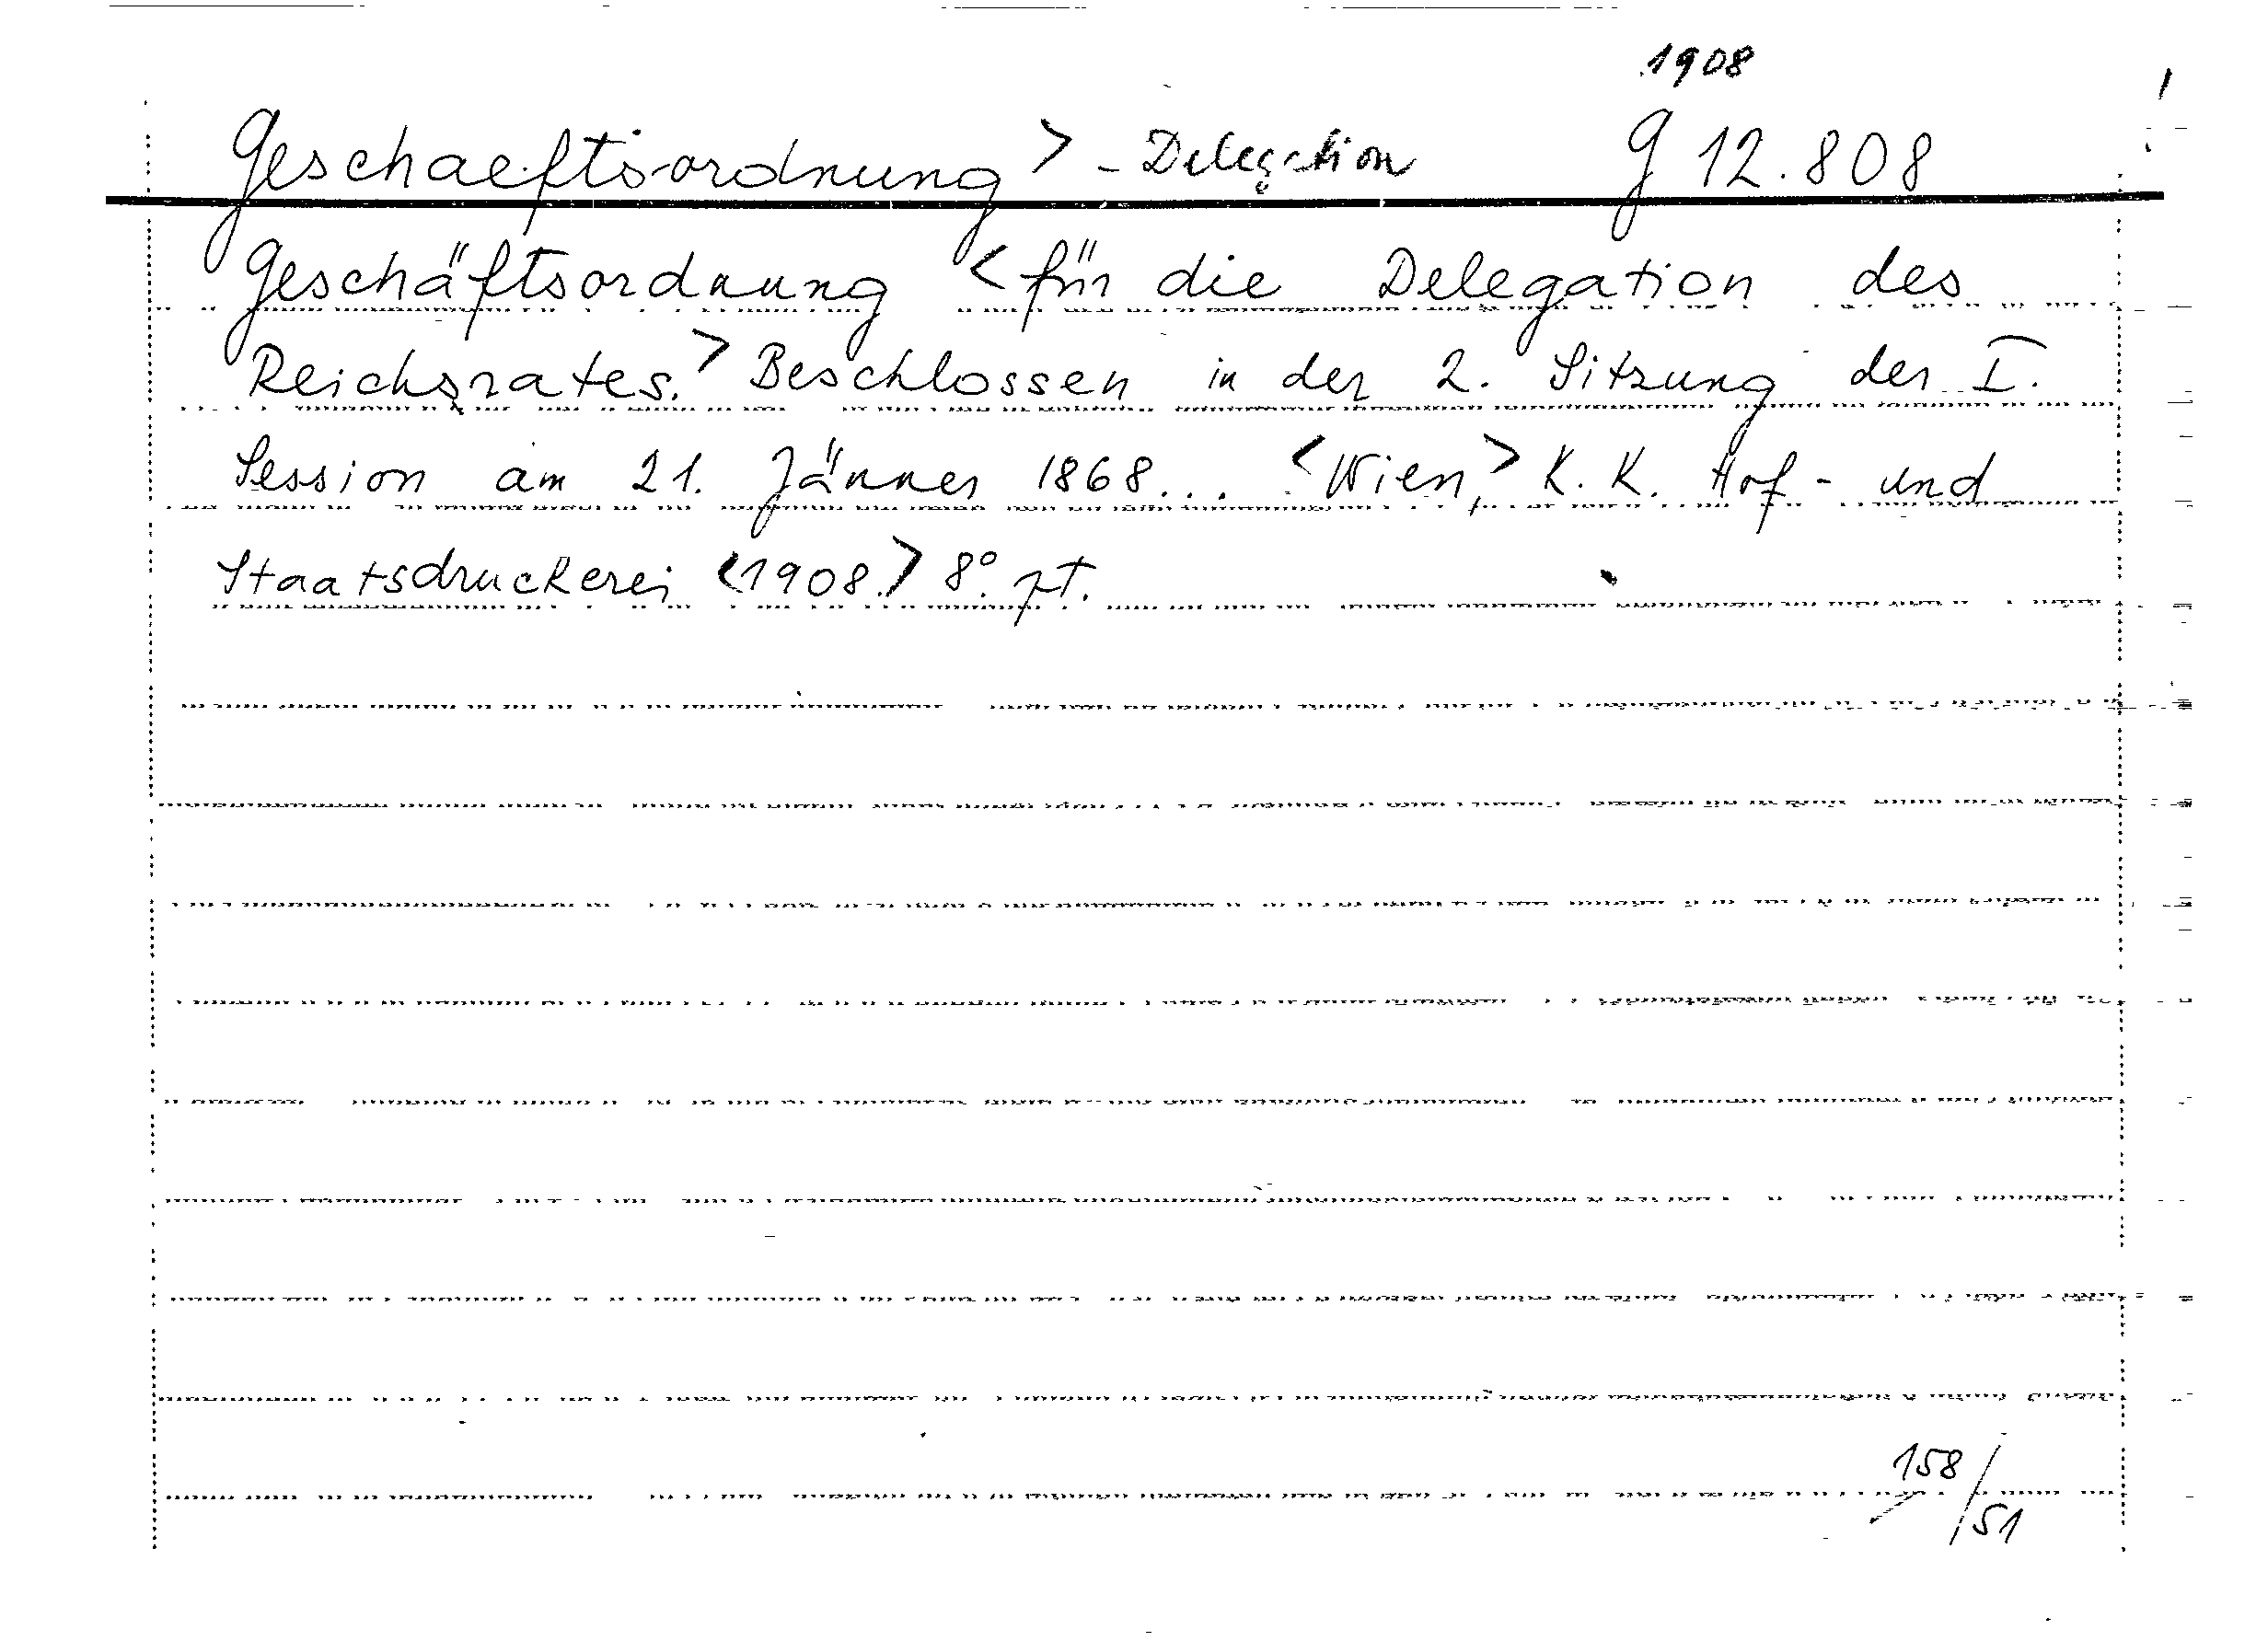 1908
Geschaeftsordnung > - Delegation G 12.808
Geschäftsordnung < für die Delegation des
Reichsrates. > Beschlossen in der 2. Sitzung der I.
Session am 21. Jänner 1868... < Wien, > K. K. Hof- und
Staatsdruckerei < 1908. > 8°.
158/51